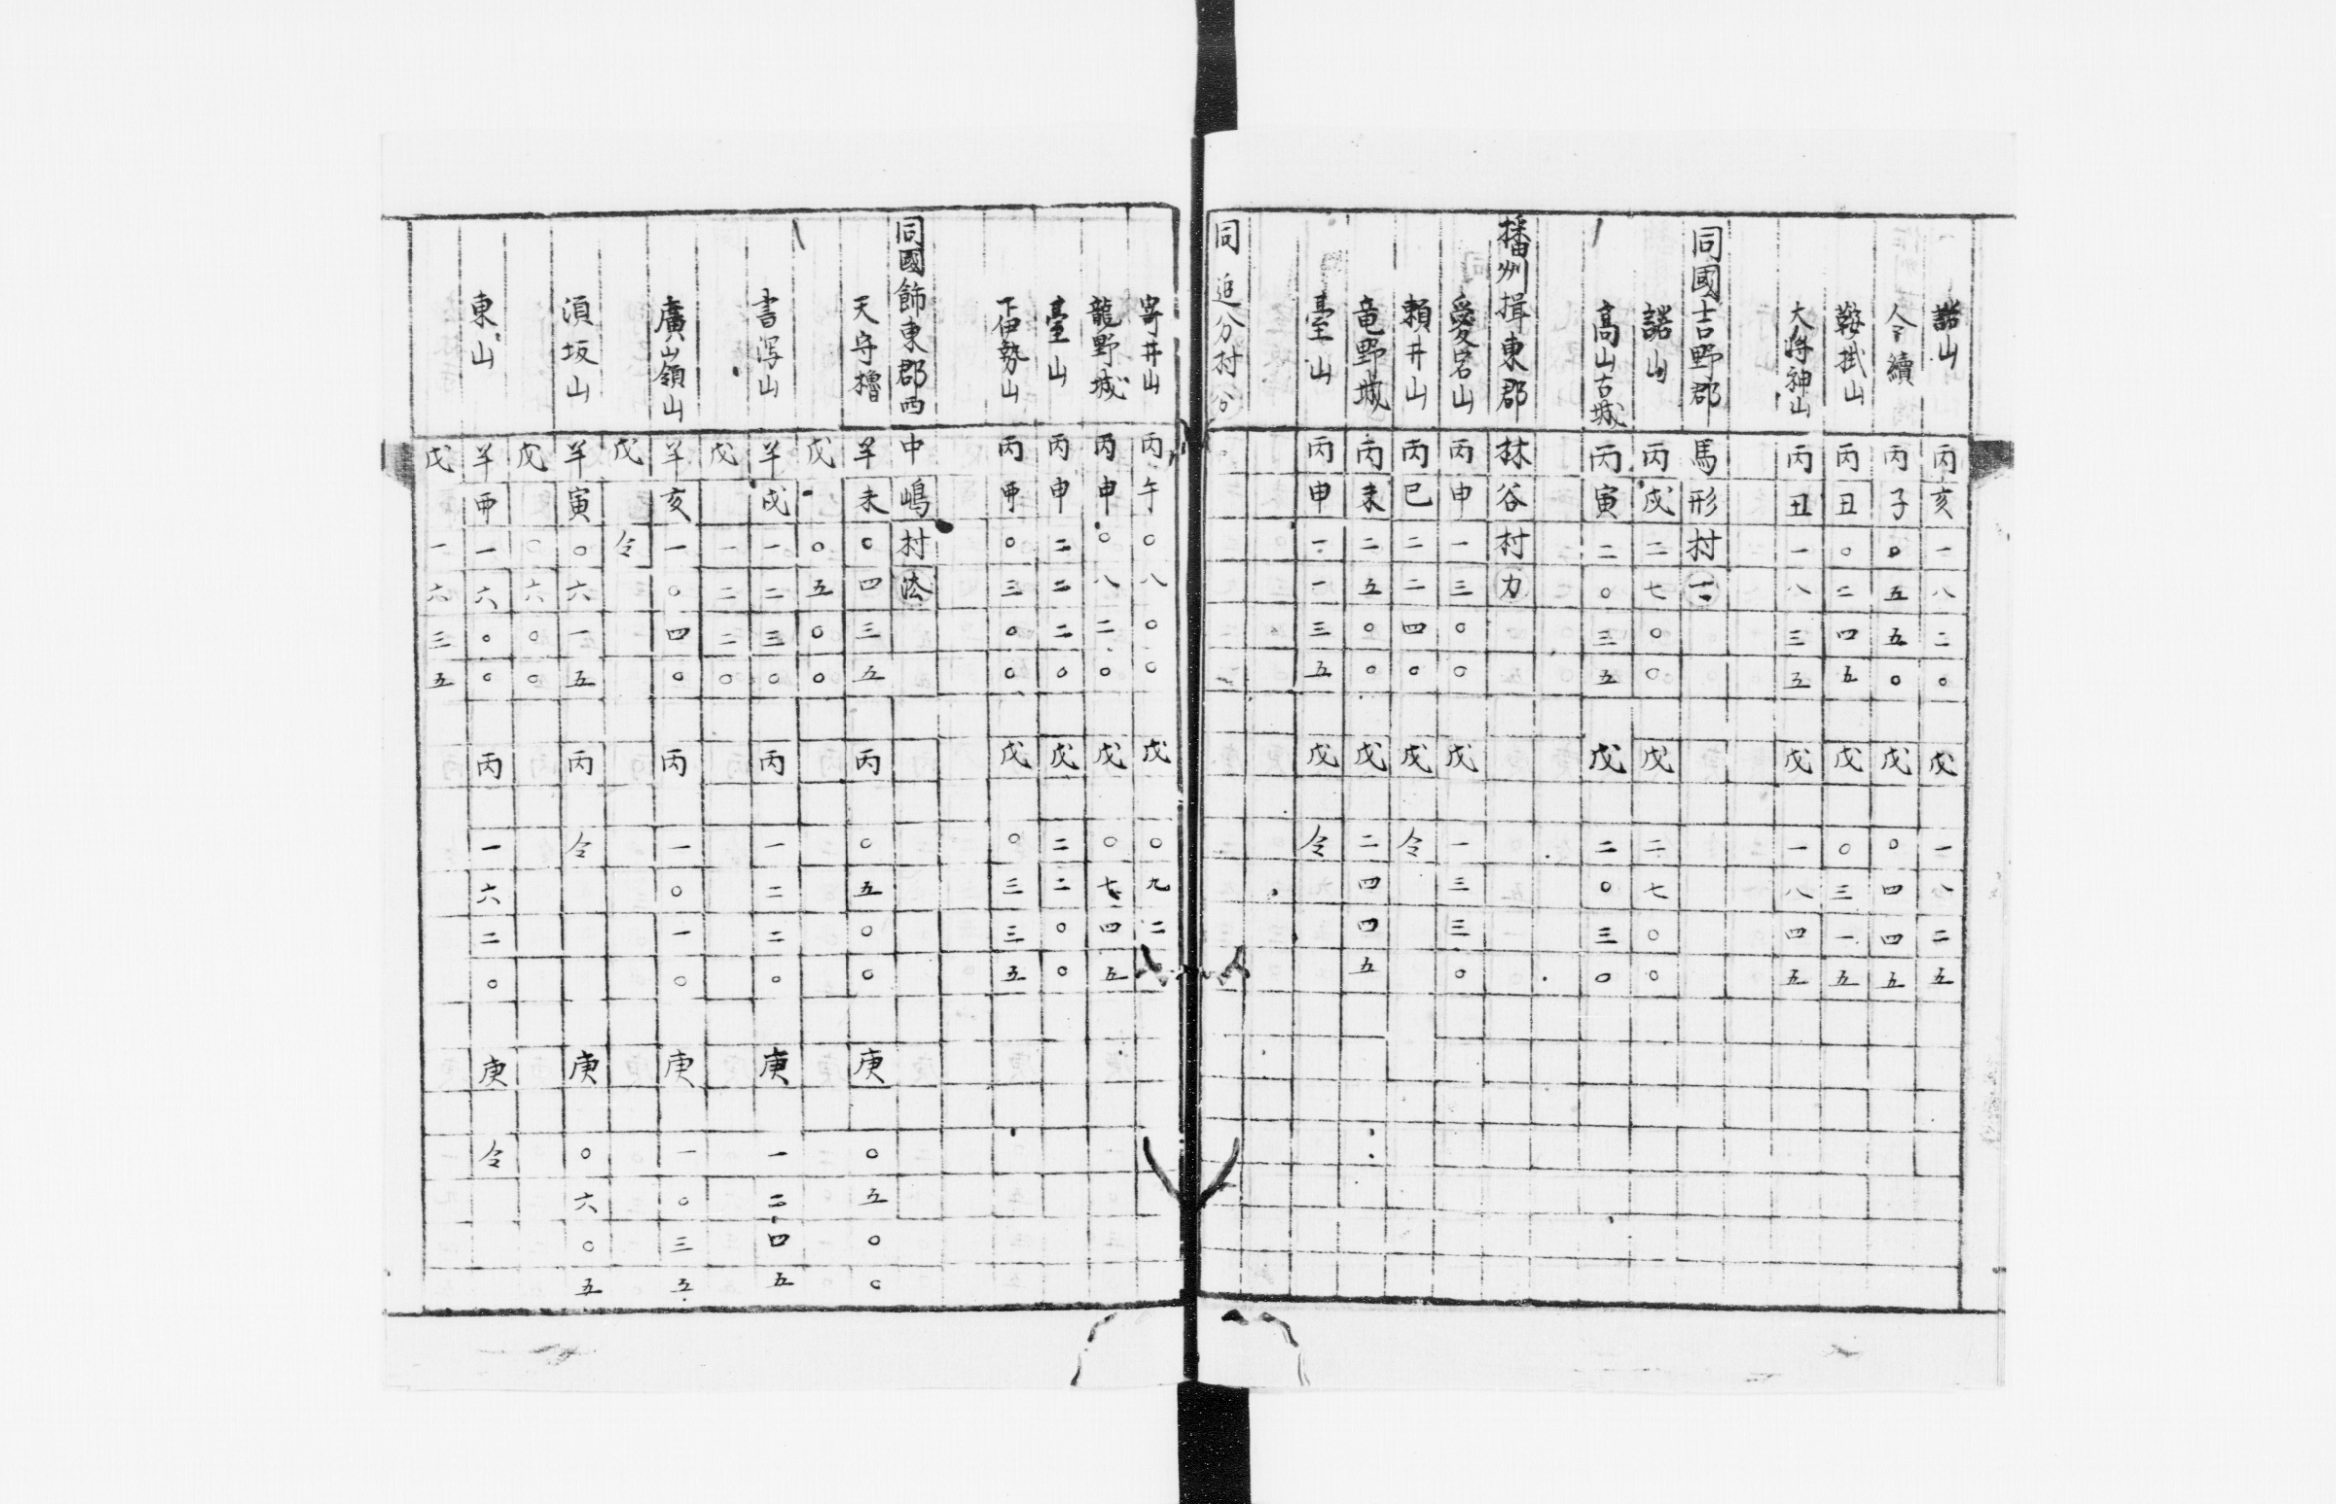 諾山 丙亥一八二〇 戊 一八二五
令續 丙子〇五五〇 戊 〇四四五
鞍掛山 丙丑〇二四五 戊 〇三一五
大将神山 丙丑一八三五 戊 一八四五
同國吉野郡馬形村
諾山 丙戌二七〇〇 戊 二七〇〇
高山古城 丙寅二〇三五 戊 二〇三〇
播州揖東郡林谷村力
愛宕山 丙申一三〇〇 戊 一三三〇
頼井山 丙巳二二四〇 戊 令
竜野城 丙未二五〇〇 戊 二四四五
臺山 丙申一一三五 戊 令
同 追分村
寄井山 丙午〇八〇〇 戊 〇九二
龍野城 丙申〇八二〇 戊 〇七四五
臺山 丙申二二二〇 戊 二二〇〇
下伊勢山 丙 〇三〇〇 戊 〇三三五
同國飾東郡西中嶋村
天守櫓 羊未〇四三五 丙 〇五〇〇 庚 〇五〇〇
戊 〇五〇〇
書泻山 羊戌一二三〇 丙 一二二〇 庚 一二四五
戊 一二二〇
廣山嶺山 羊亥一〇四〇 丙 一〇一〇 庚 一〇三五
戊 令
須坂山 羊寅〇六一五 丙 令 庚 〇六〇五
戊 〇六〇〇
東山 羊 一六〇〇 丙 一六二〇 庚 令
戊 一六三五